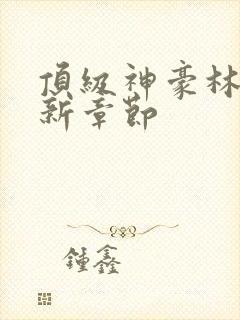 頂級神豪林
新章節
鍾鑫